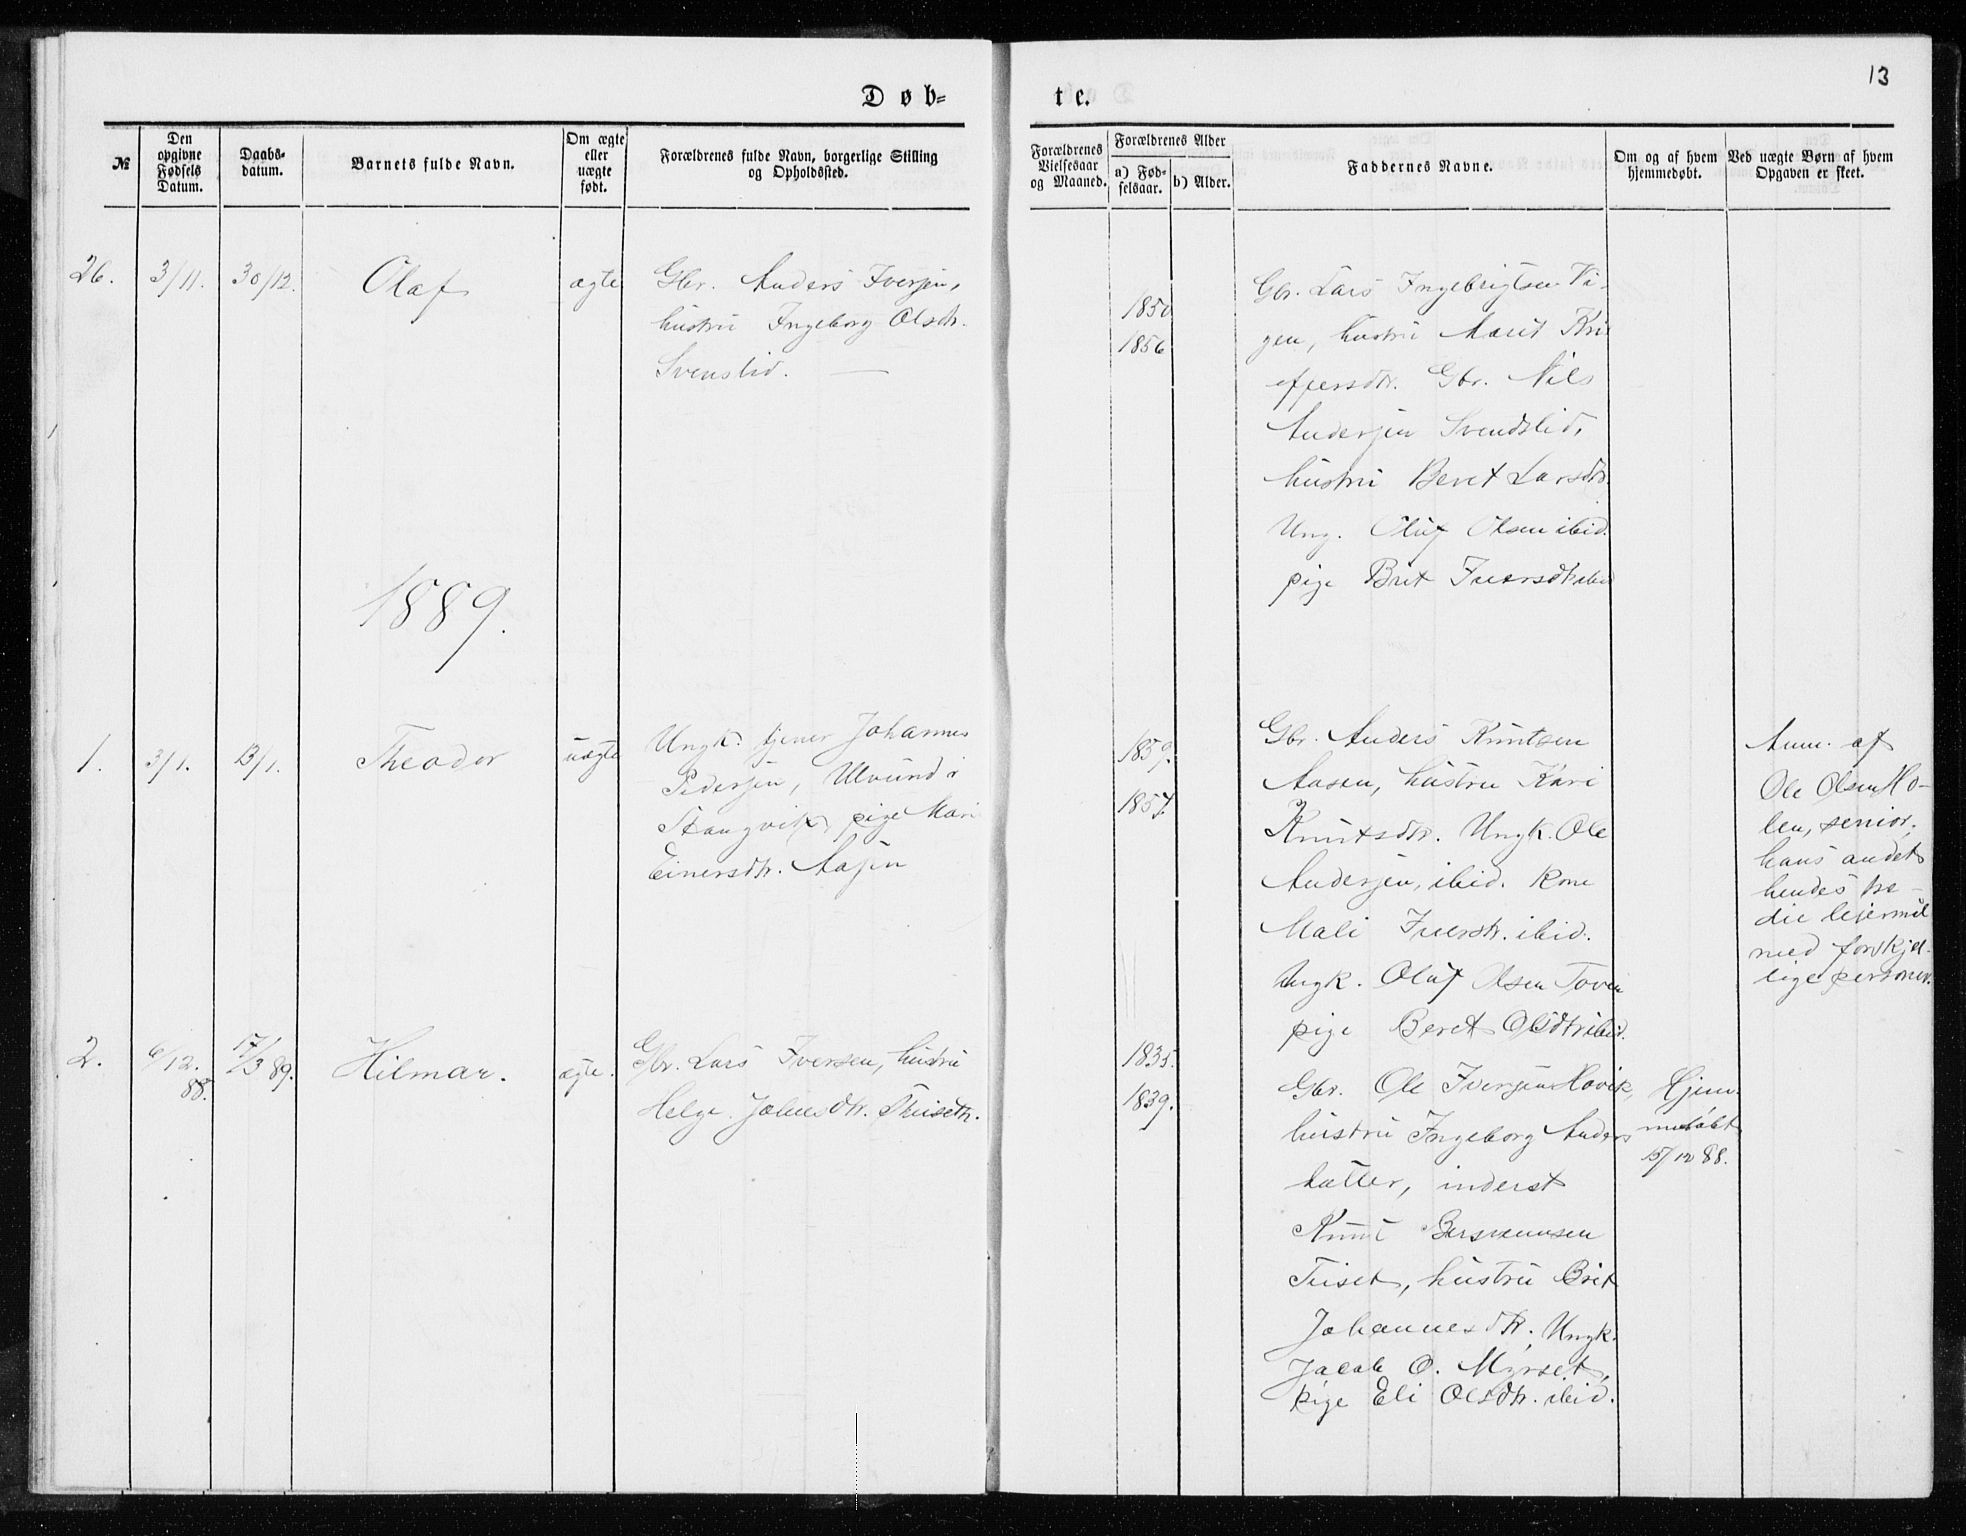 13
Døb-
te.
№
Den opgivne Fødsels Datum.
Daabs-datum.
Barnets fulde Navn.
Om ægte eller uægte født.
Forældrenes fulde Navn, borgerlige Stilling og Opholdssted.
Forældrenes Vielsesaar og Maaned.
Forældrenes Alder
a) Fød-selsaar.
b) Alder.
Faddernes Navne.
Om og af hvem hjemmedøbt.
Ved uægte Børn af hvem Opgaven er skeet.
26.
3/11.
30/12.
Olaf
ægte
Gbr. Anders Iversen,
hustru Ingeborg Olsdtr.
Svenslid.
1850
1856
Gbr. Lars Ingebrigtsen Vi-
gen, hustru Marit Kri
offersdtr. Gbr. Nils
Andersen Svendslid,
hustru Beret Larsdtr.
Ung. Oluf Olsen ibid.
pige Brit Iversdtr ibid
1889.
1.
3/1.
13/1.
Theodor
uægte
Ungk. tjener Johannes
Pedersen, Ulvund i
Stangvik, pige Mari
Einersdtr. Aasen
1859.
1857.
Gbr. Anders Knutsen
Aasen, hustru Kari
Knutsdtr. Ungk. Ole
Andersen, ibid. Kone
Mali Iverstr. ibid.
Ungk. Oluf Olsen Toven
pige Beret Olsdtr ibid.
Anm. af
Ole Olsen Ho-
len, senior.
hans andet
hendes tre-
die lejermål
med forskjel-
lige personer.
2.
6/12.
88.
17/3 89.
Hilmar.
ægte.
Gbr. Lars Iversen, hustru
Helge Johnsdtr. Thiseth.
1835.
1839.
Gbr. Ole Iversen Hovik,
hustru Ingeborg Anders
datter, inderst
Knut Bersvennsen
Tiset, hustru Brit
Johannesdtr. Ungk.
Jacob O. Myrset,
pige Eli Olsdtr. ibid.
Hjem-
medøbt
15/12 88.